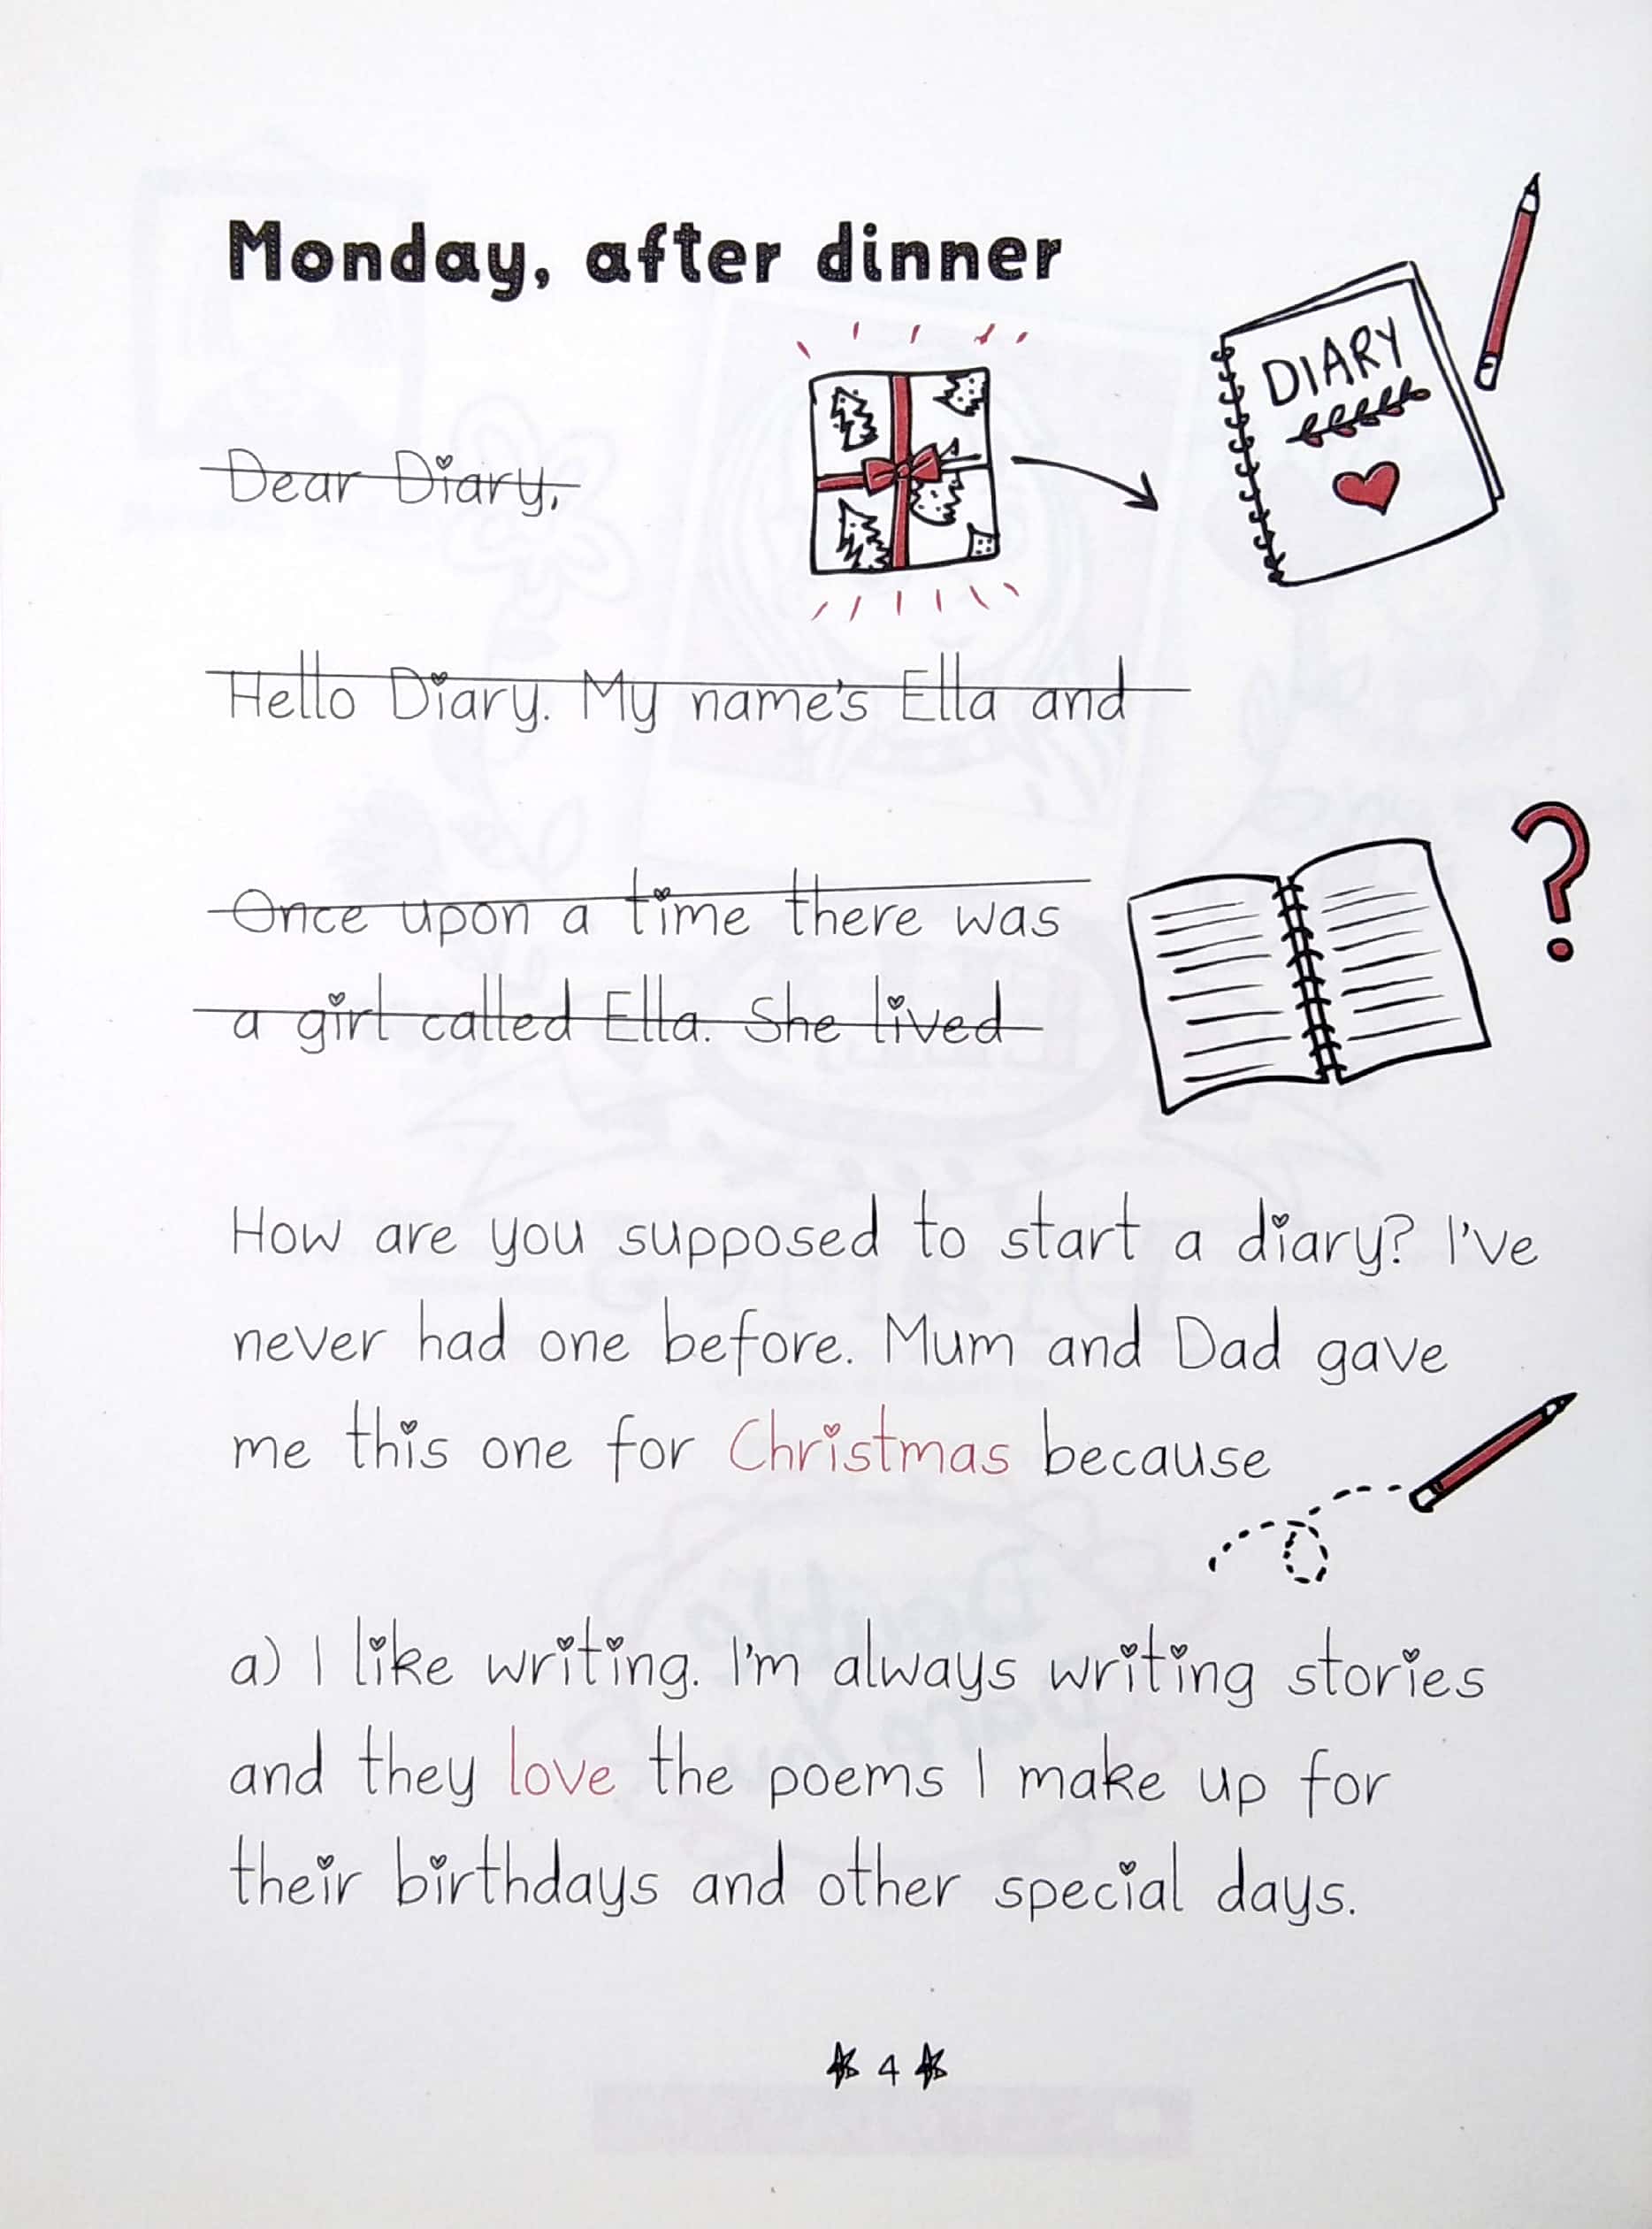 Monday, after dinner
DIARY
Dear Diary,
Hello Diary. My name's Ella and
Once upon a time there was
a girl called Ella. She lived
How are you supposed to start a diary? I've
never had one before. Mum and Dad gave
me this one for Christmas because
a) I like writing. I'm always writing stories
and they love the poems I make up for
their birthdays and other special days.
4